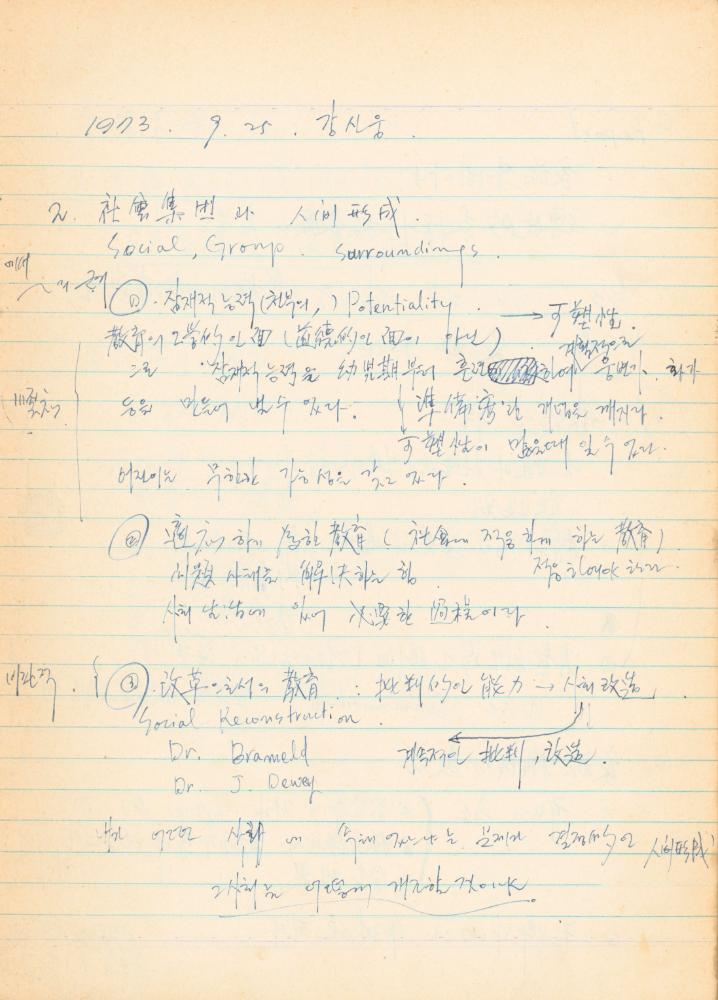 1973. 9. 25. 강신웅.
2. 社會集団과 人间形成.
Social, Group. Surroundings.
①. 잠재적 능력 (천부의, ) Potentiality.
→ 可塑性.
教育의 2월的인 面 (道德的인 面이 아닌)
으로 잠재적 능력을 幼児期부터 훈련 하여 웅변가, 화가
등을 만들어 낼 수 있다. 準備 란 개념은 깨지다.
可塑性이 많을때 일 수 있다.
어린이는 무한한 가능성을 갖고 있다.
② 適応하기 爲한 教育 (社会에 적응하게 하는 教育)
问題 사태를 解决하는 힘
적응 하여야 한다.
사회 生活에 있어 必要한 이다.
③. 改革으로서의 教育 : 批判的인 能力 → 사회 改造.
Social Reconstruction.
Dr. Brameld
계속적인 批判, 改造.
Dr. J. Dewey
내가 어떤 사회에 속해 있느냐는 문제가 결정的인 人间形成
그 사회를 어떻게 개조할 것이냐.